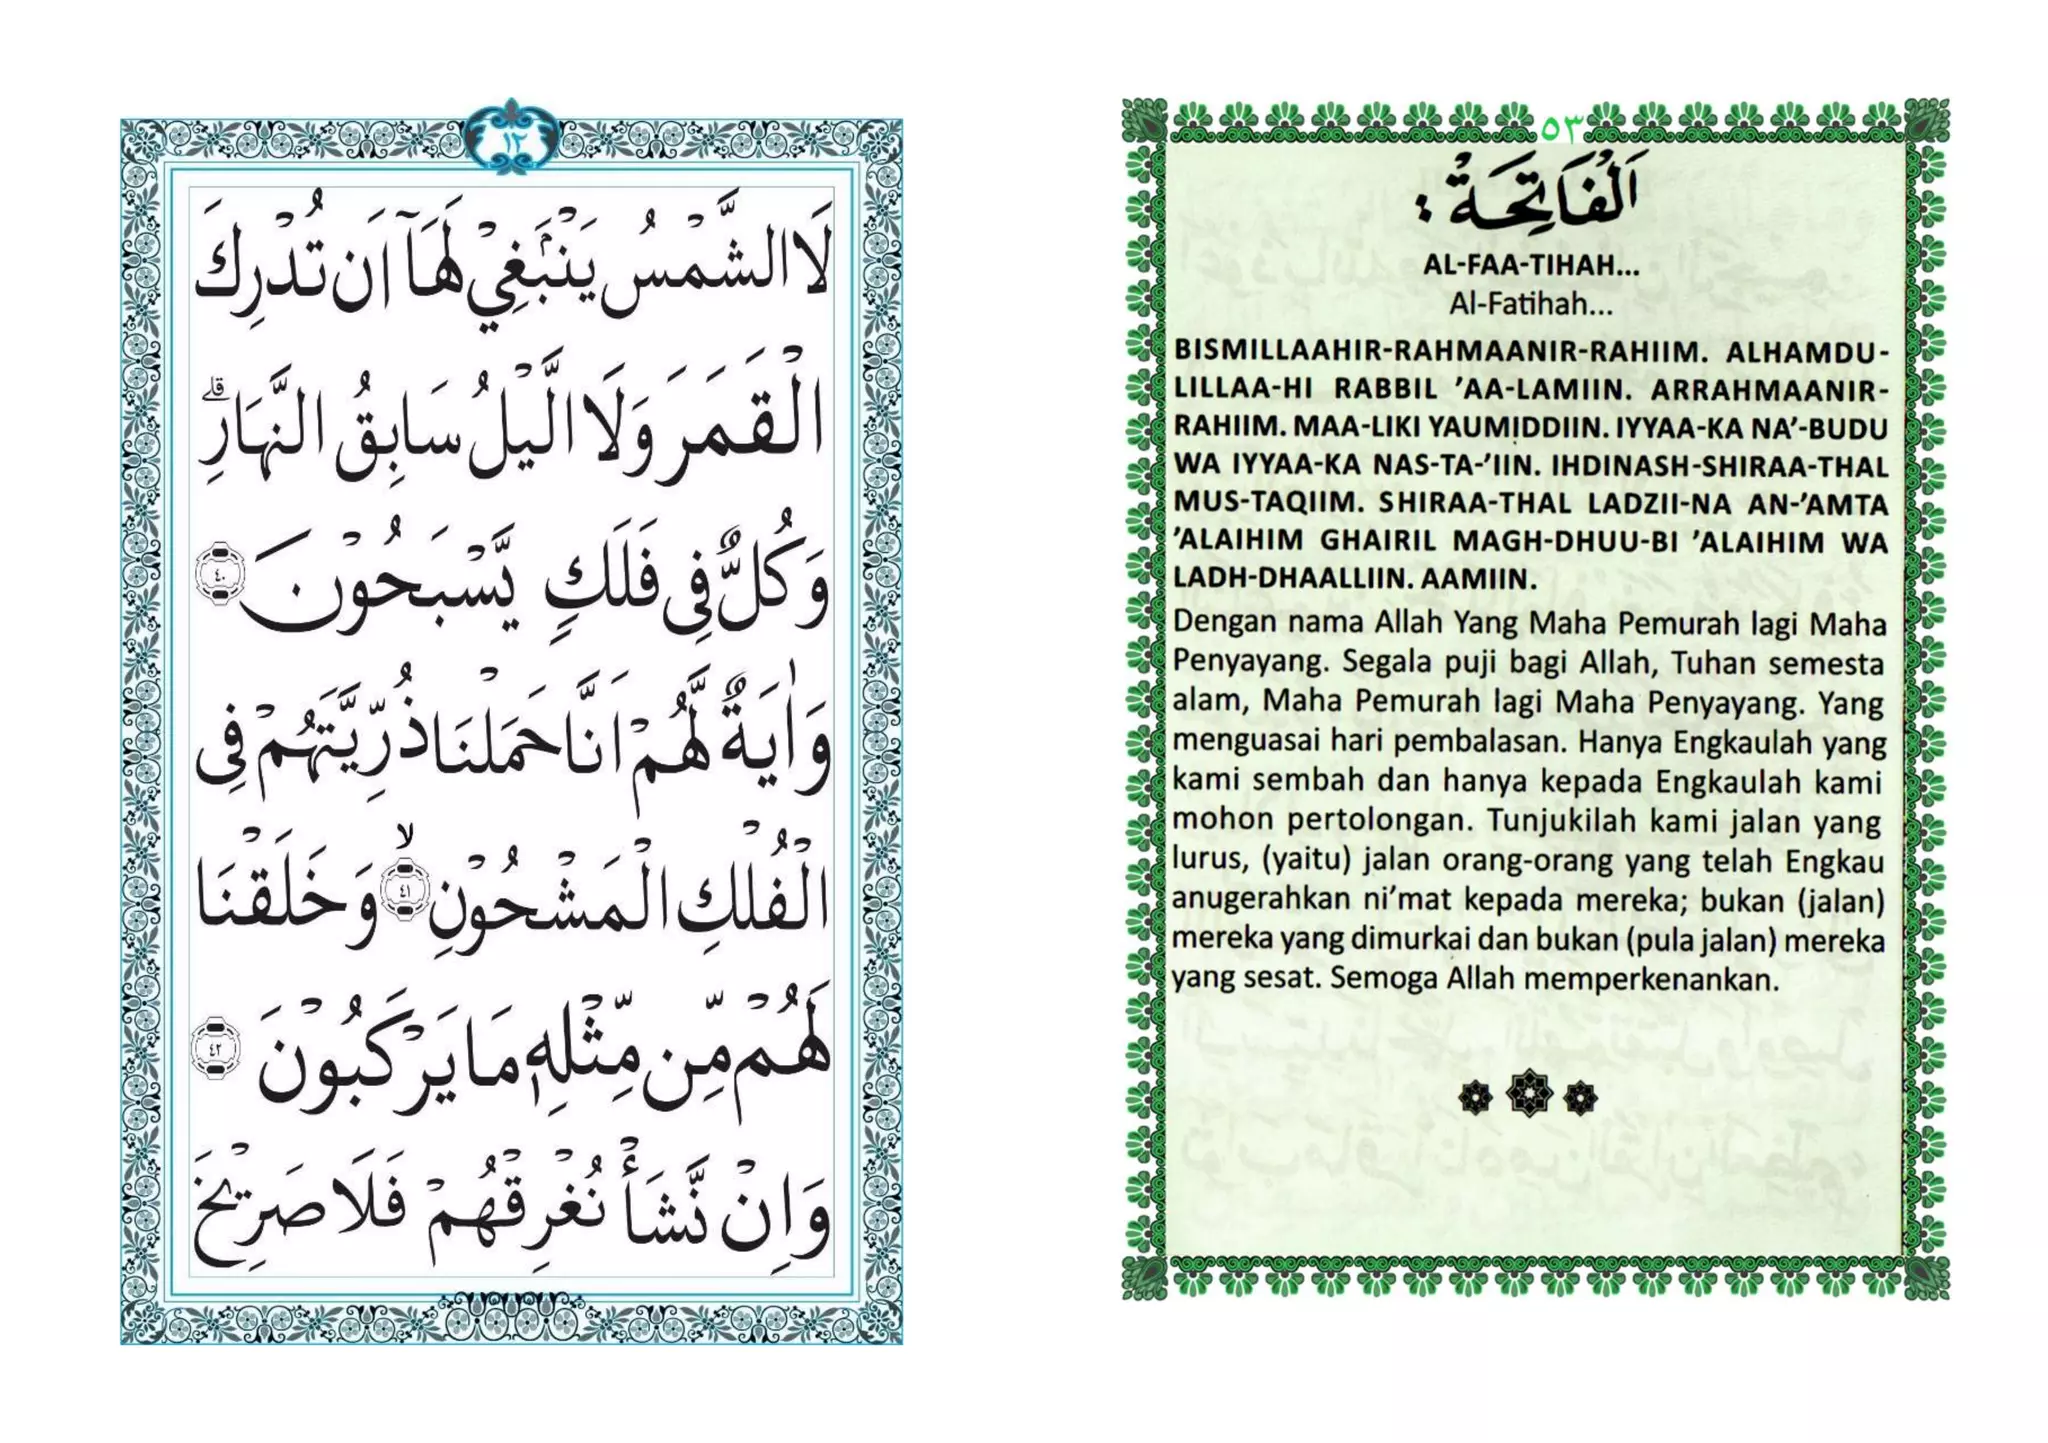 ١٢
لَا الشَّمْسُ يَنْۢبَغِيْ لَهَآ اَنْ تُدْرِكَ
الْقَمَرَ وَلَا الَّيْلُ سَابِقُ النَّهَارِ ۗ
وَكُلٌّ فِى فَلَكٍ يَّسْبَحُوْنَ ﴿٤٠﴾
وَاٰيَةٌ لَّهُمْ اَنَّا حَمَلْنَا ذُرِّيَّتَهُمْ فِى
الْفُلْكِ الْمَشْحُوْنِ ﴿٤١﴾ ۙ وَخَلَقْنَا
لَهُمْ مِّنْ مِّثْلِهٖ مَا يَرْكَبُوْنَ ﴿٤٢﴾
وَاِنْ نَّشَأْ نُغْرِقْهُمْ فَلَا صَرِيْخَ
٥٣
اَلْفَاتِحَةْ :
AL-FAA-TIHAH...
Al-Fatihah...
BISMILLAAHIR-RAHMAANIR-RAHIIM. ALHAMDU-
LILLAA-HI RABBIL ’AA-LAMIIN. ARRAHMAANIR-
RAHIIM. MAA-LIKI YAUMIDDIIN. IYYAA-KA NA’-BUDU
WA IYYAA-KA NAS-TA-’IIN. IHDINASH-SHIRAA-THAL
MUS-TAQIIM. SHIRAA-THAL LADZII-NA AN-’AMTA
’ALAIHIM GHAIRIL MAGH-DHUU-BI ’ALAIHIM WA
LADH-DHAALLIIN. AAMIIN.
Dengan nama Allah Yang Maha Pemurah lagi Maha
Penyayang. Segala puji bagi Allah, Tuhan semesta
alam, Maha Pemurah lagi Maha Penyayang. Yang
menguasai hari pembalasan. Hanya Engkaulah yang
kami sembah dan hanya kepada Engkaulah kami
mohon pertolongan. Tunjukilah kami jalan yang
lurus, (yaitu) jalan orang-orang yang telah Engkau
anugerahkan ni’mat kepada mereka; bukan (jalan)
mereka yang dimurkai dan bukan (pula jalan) mereka
yang sesat. Semoga Allah memperkenankan.